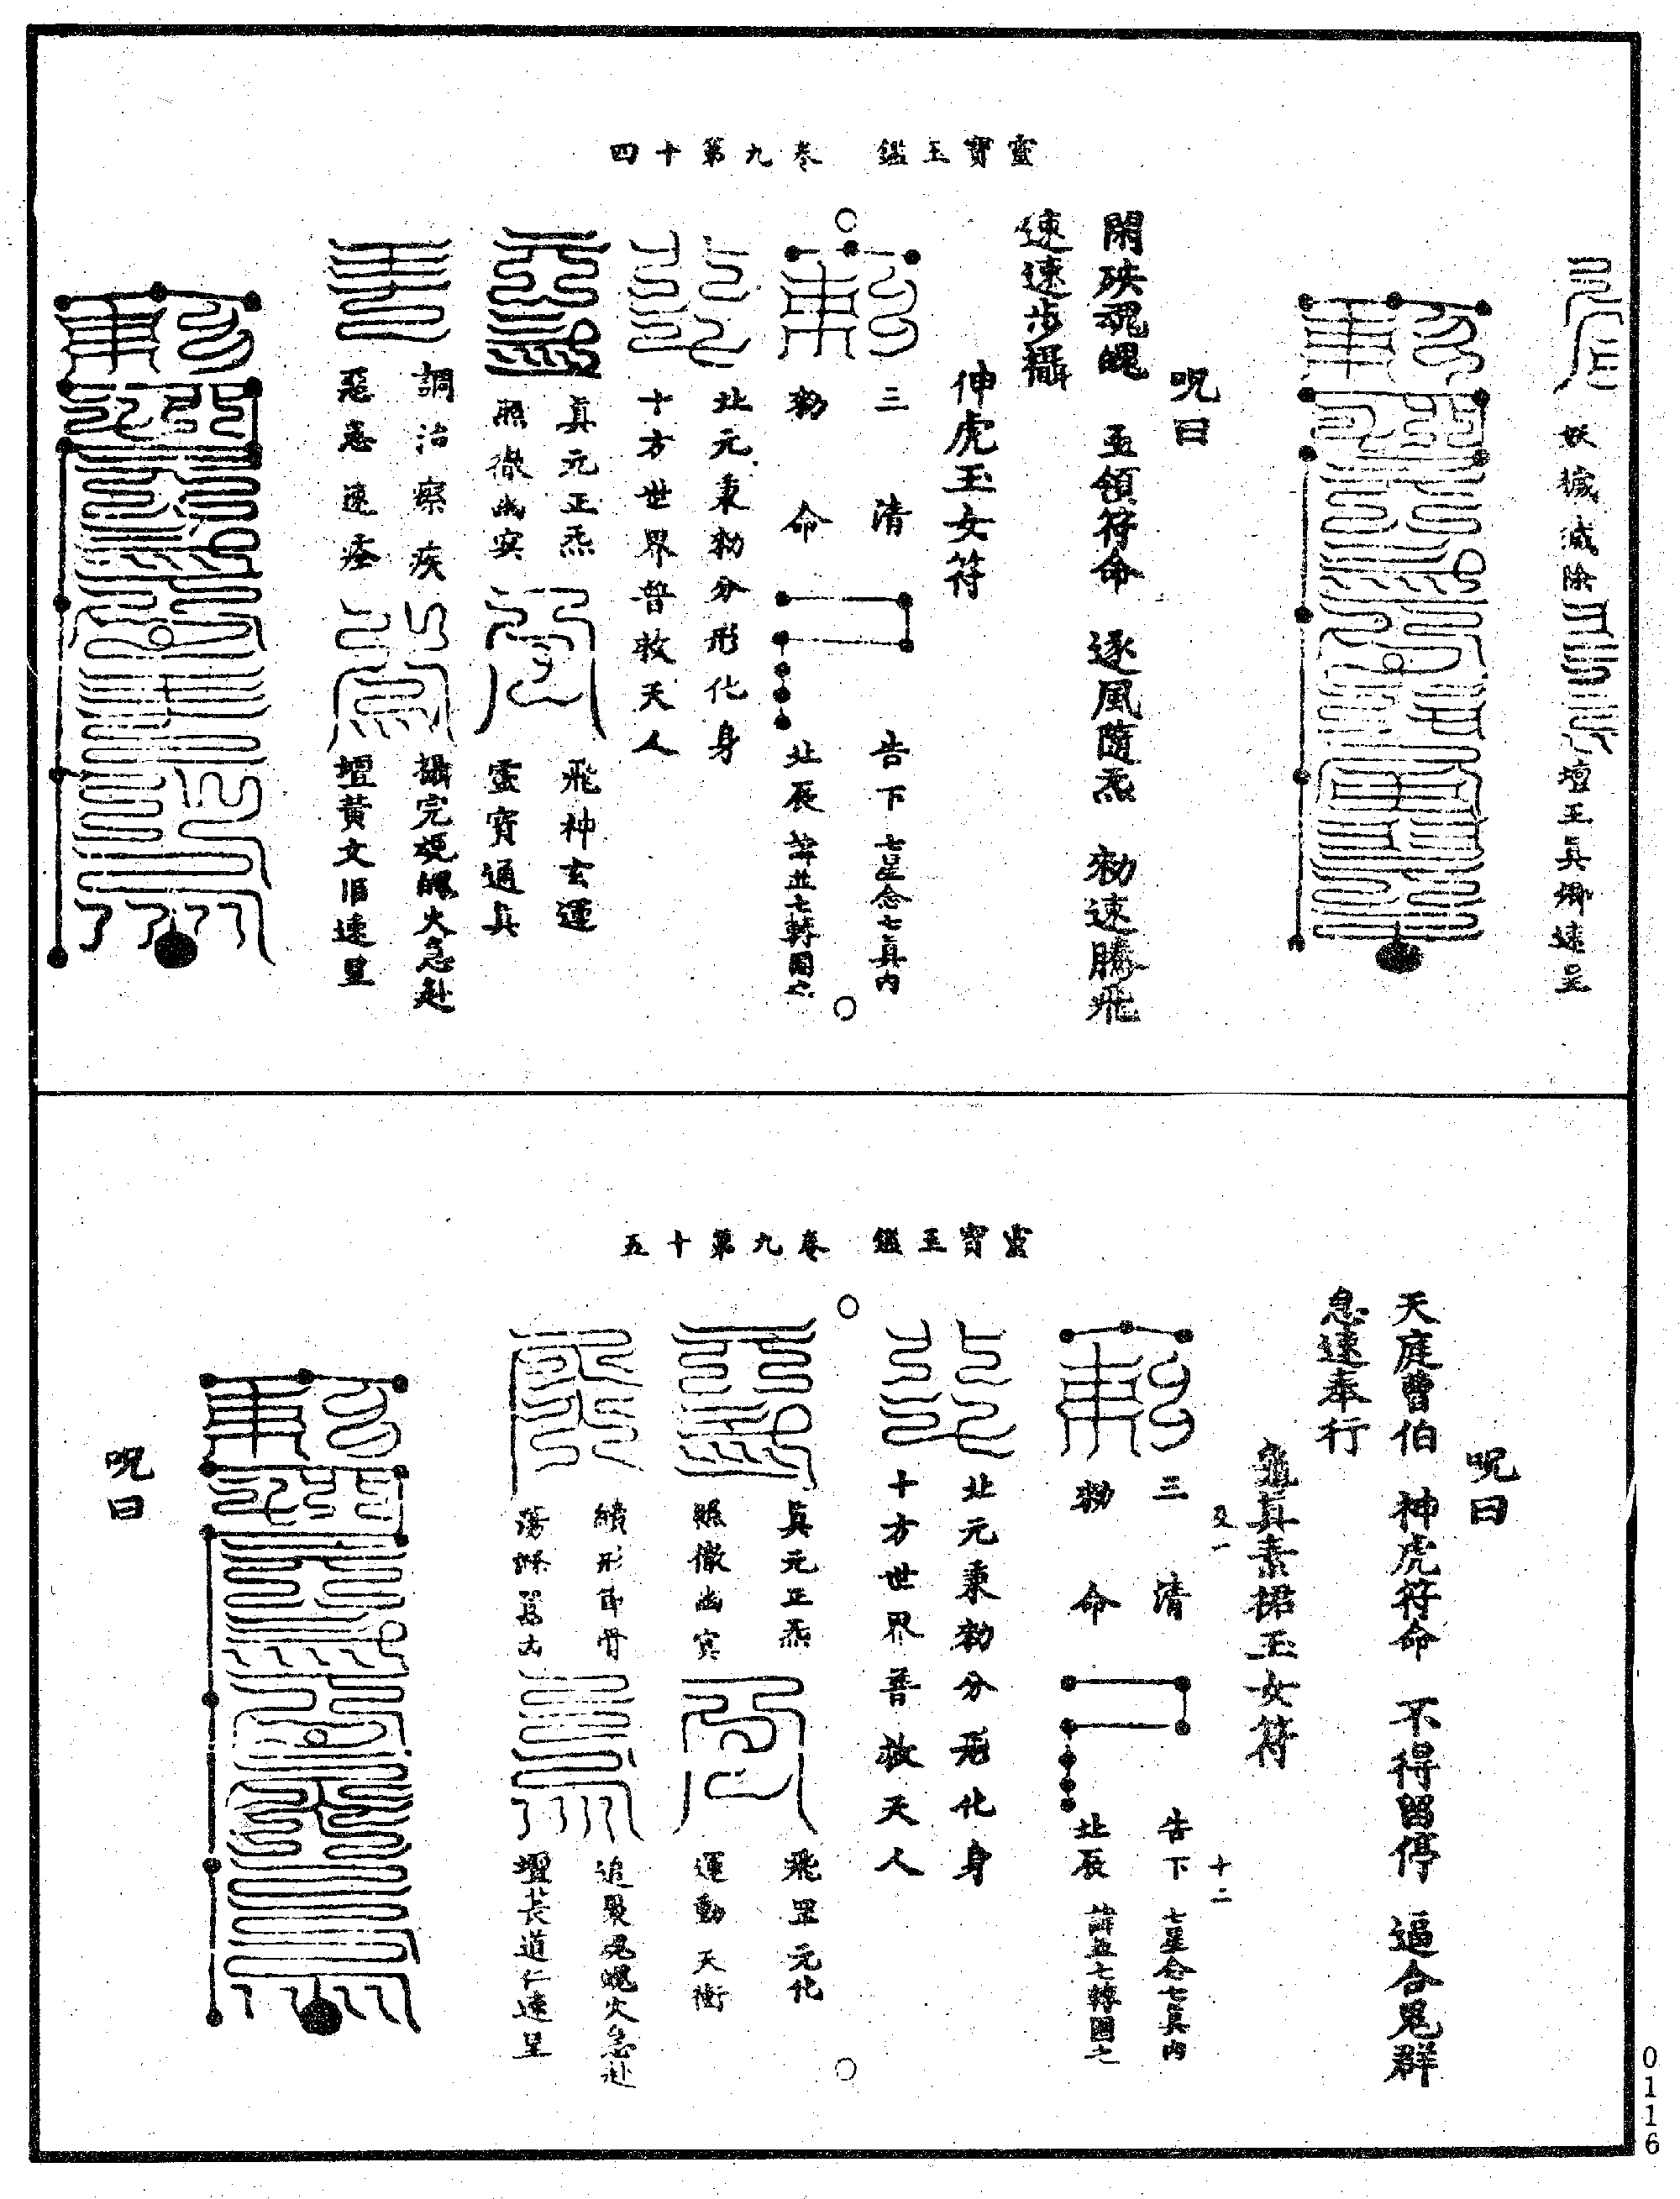 靈寶玉鑑　卷九第十四
妖穢滅除
壇王真卿速呈
呪曰
閑殃魂魄　五領符命　逐風隨炁　勑速騰飛
速速步攝
伸虎玉女符
三　清　告下　七星念七真内
勑　命　北辰　諱並七轉圍之
北元秉勑分形化身
十方世界普救天人
真元正炁　飛神玄運
照徹幽冥　靈寶通真
調治瘵疾　攝完魂魄火急赴
惡恚速痊　壇黃文旧速呈
靈寶玉鑑　卷九第十五
呪曰
天庭曹伯　神虎符命　不得留停　逼合鬼群
急速奉行
龜真素裙玉女符
又一　十二
三　清　告下　七星念七真内
勑　命　北辰　諱並七轉圍之
北元秉勑分形化身
十方世界普救天人
真元正炁　飛罡元化
照徹幽冥　運動天衡
續形　骨　追聚魂魄火急赴
蕩滌　壇萇道仁速呈
呪曰
0116